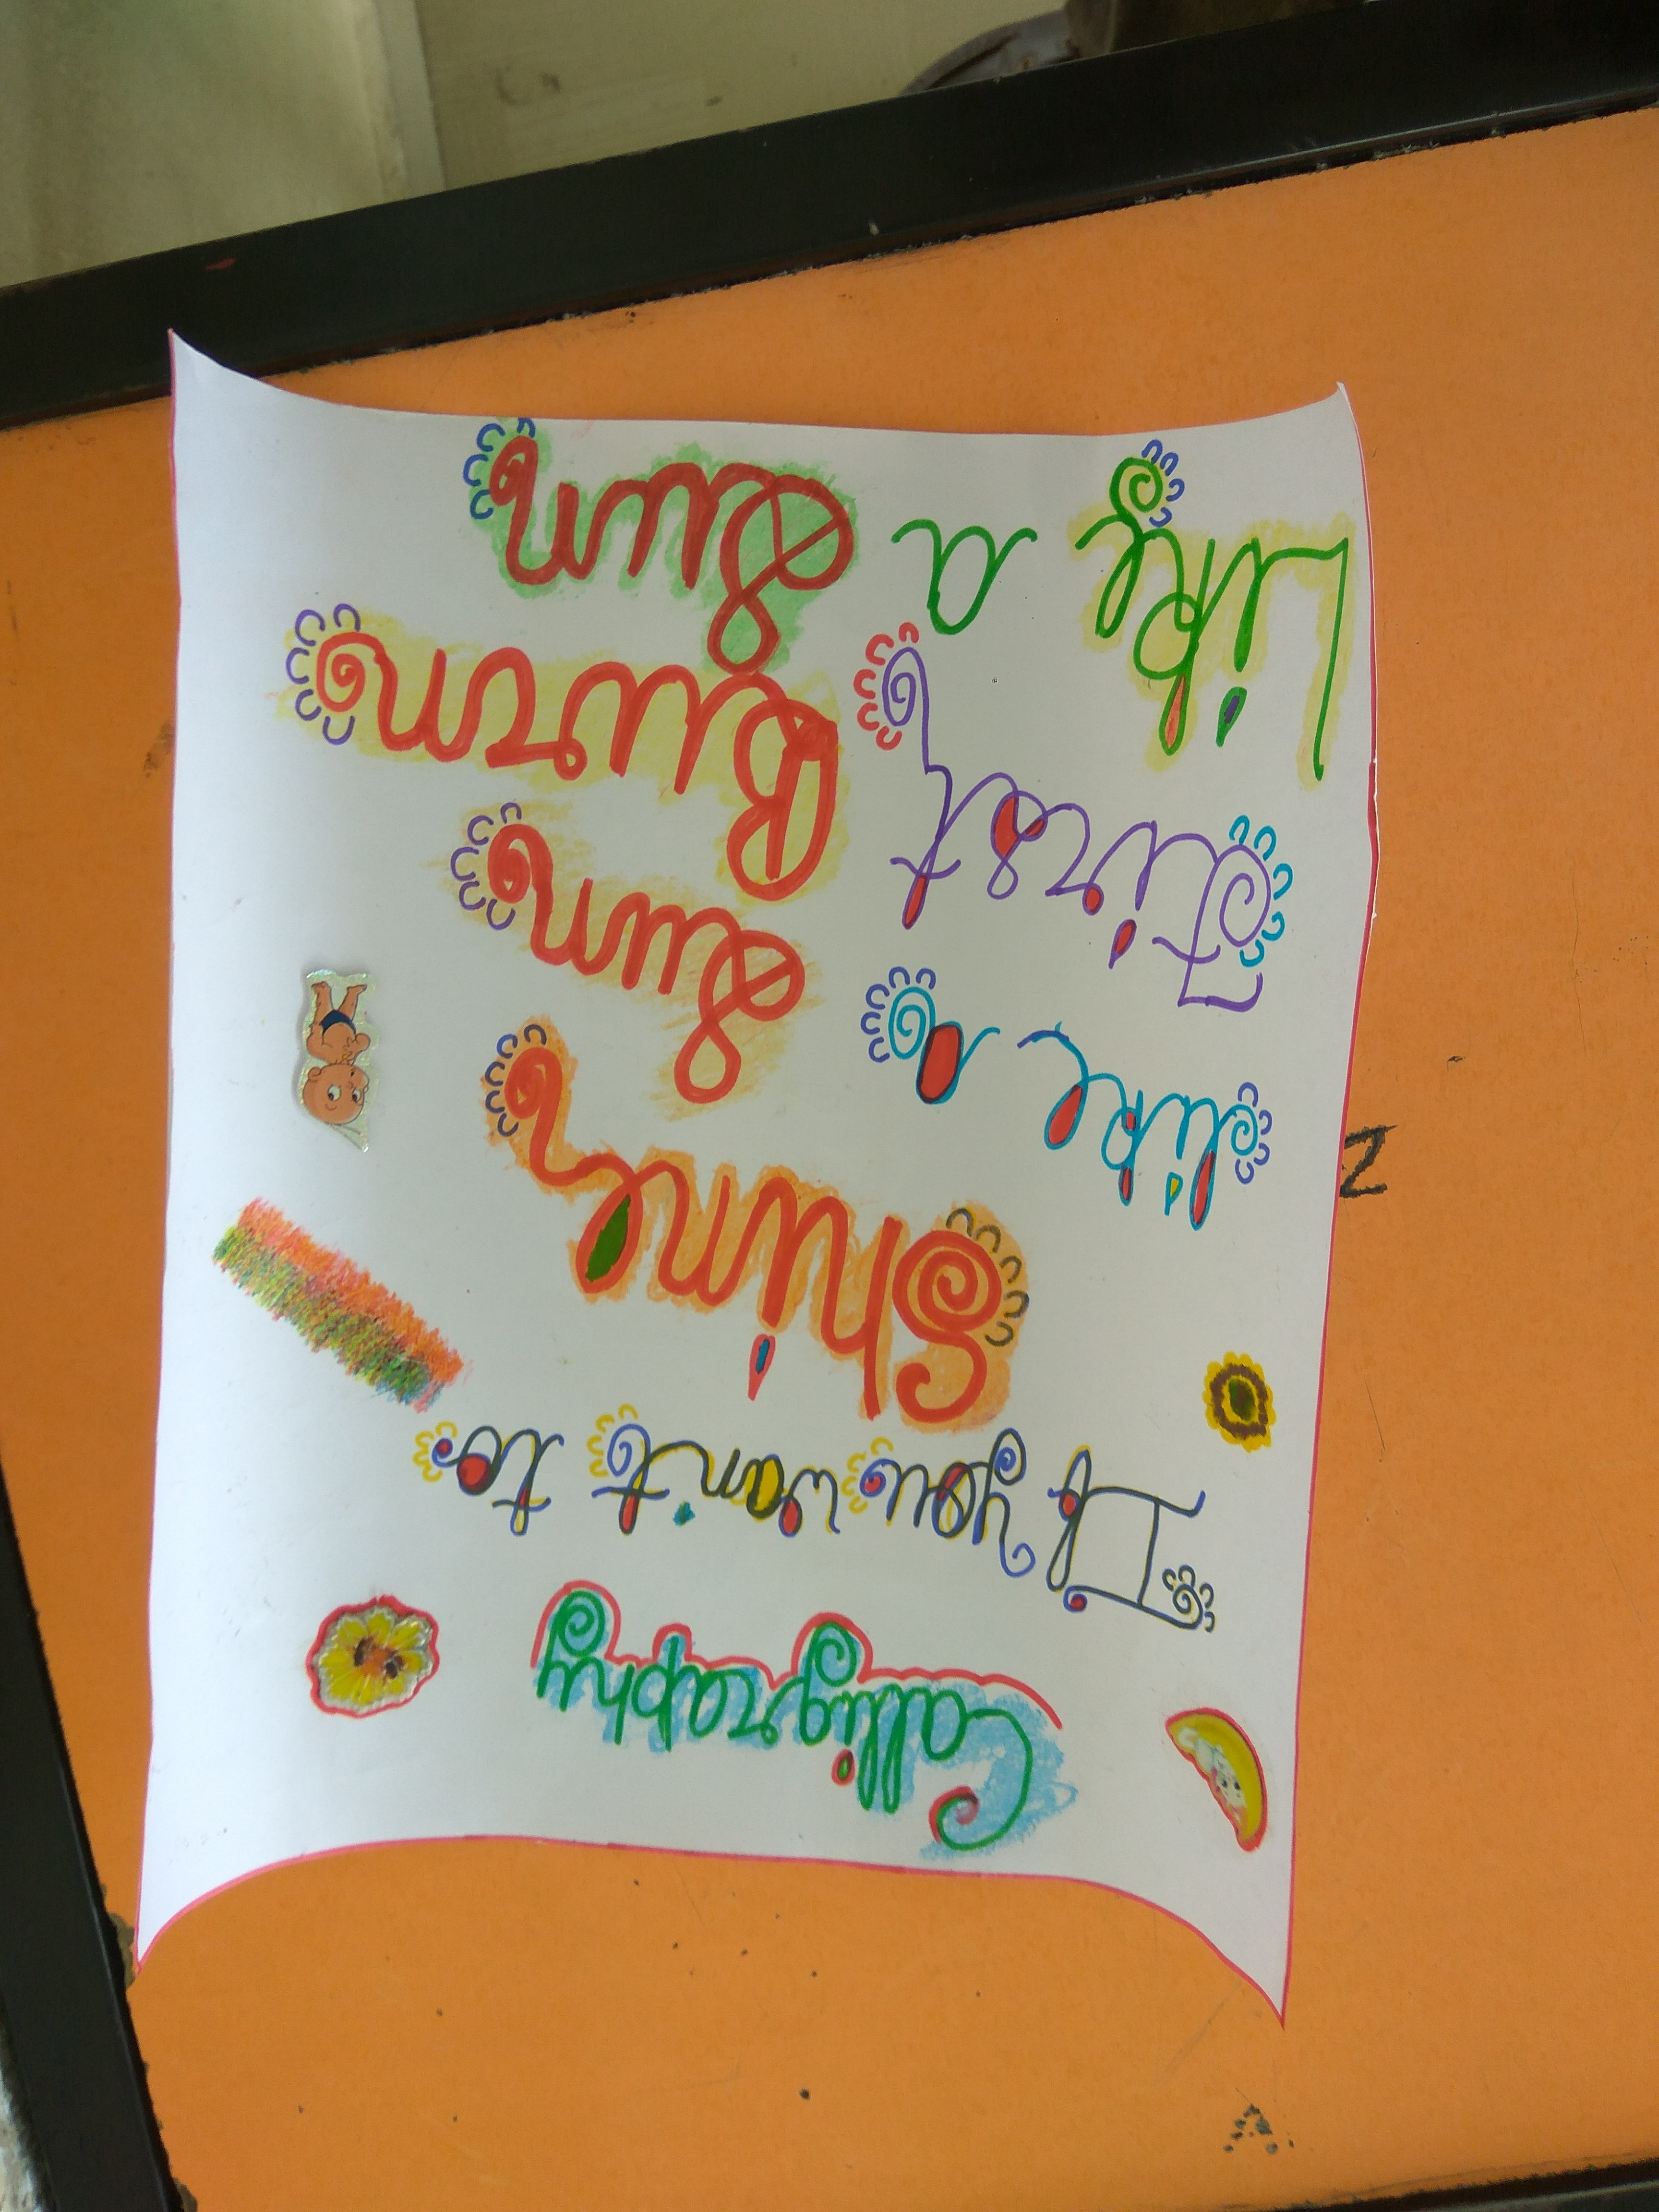 Calligraphy
If you want to
Shine
like a Sun
First Burn
Like a Sun